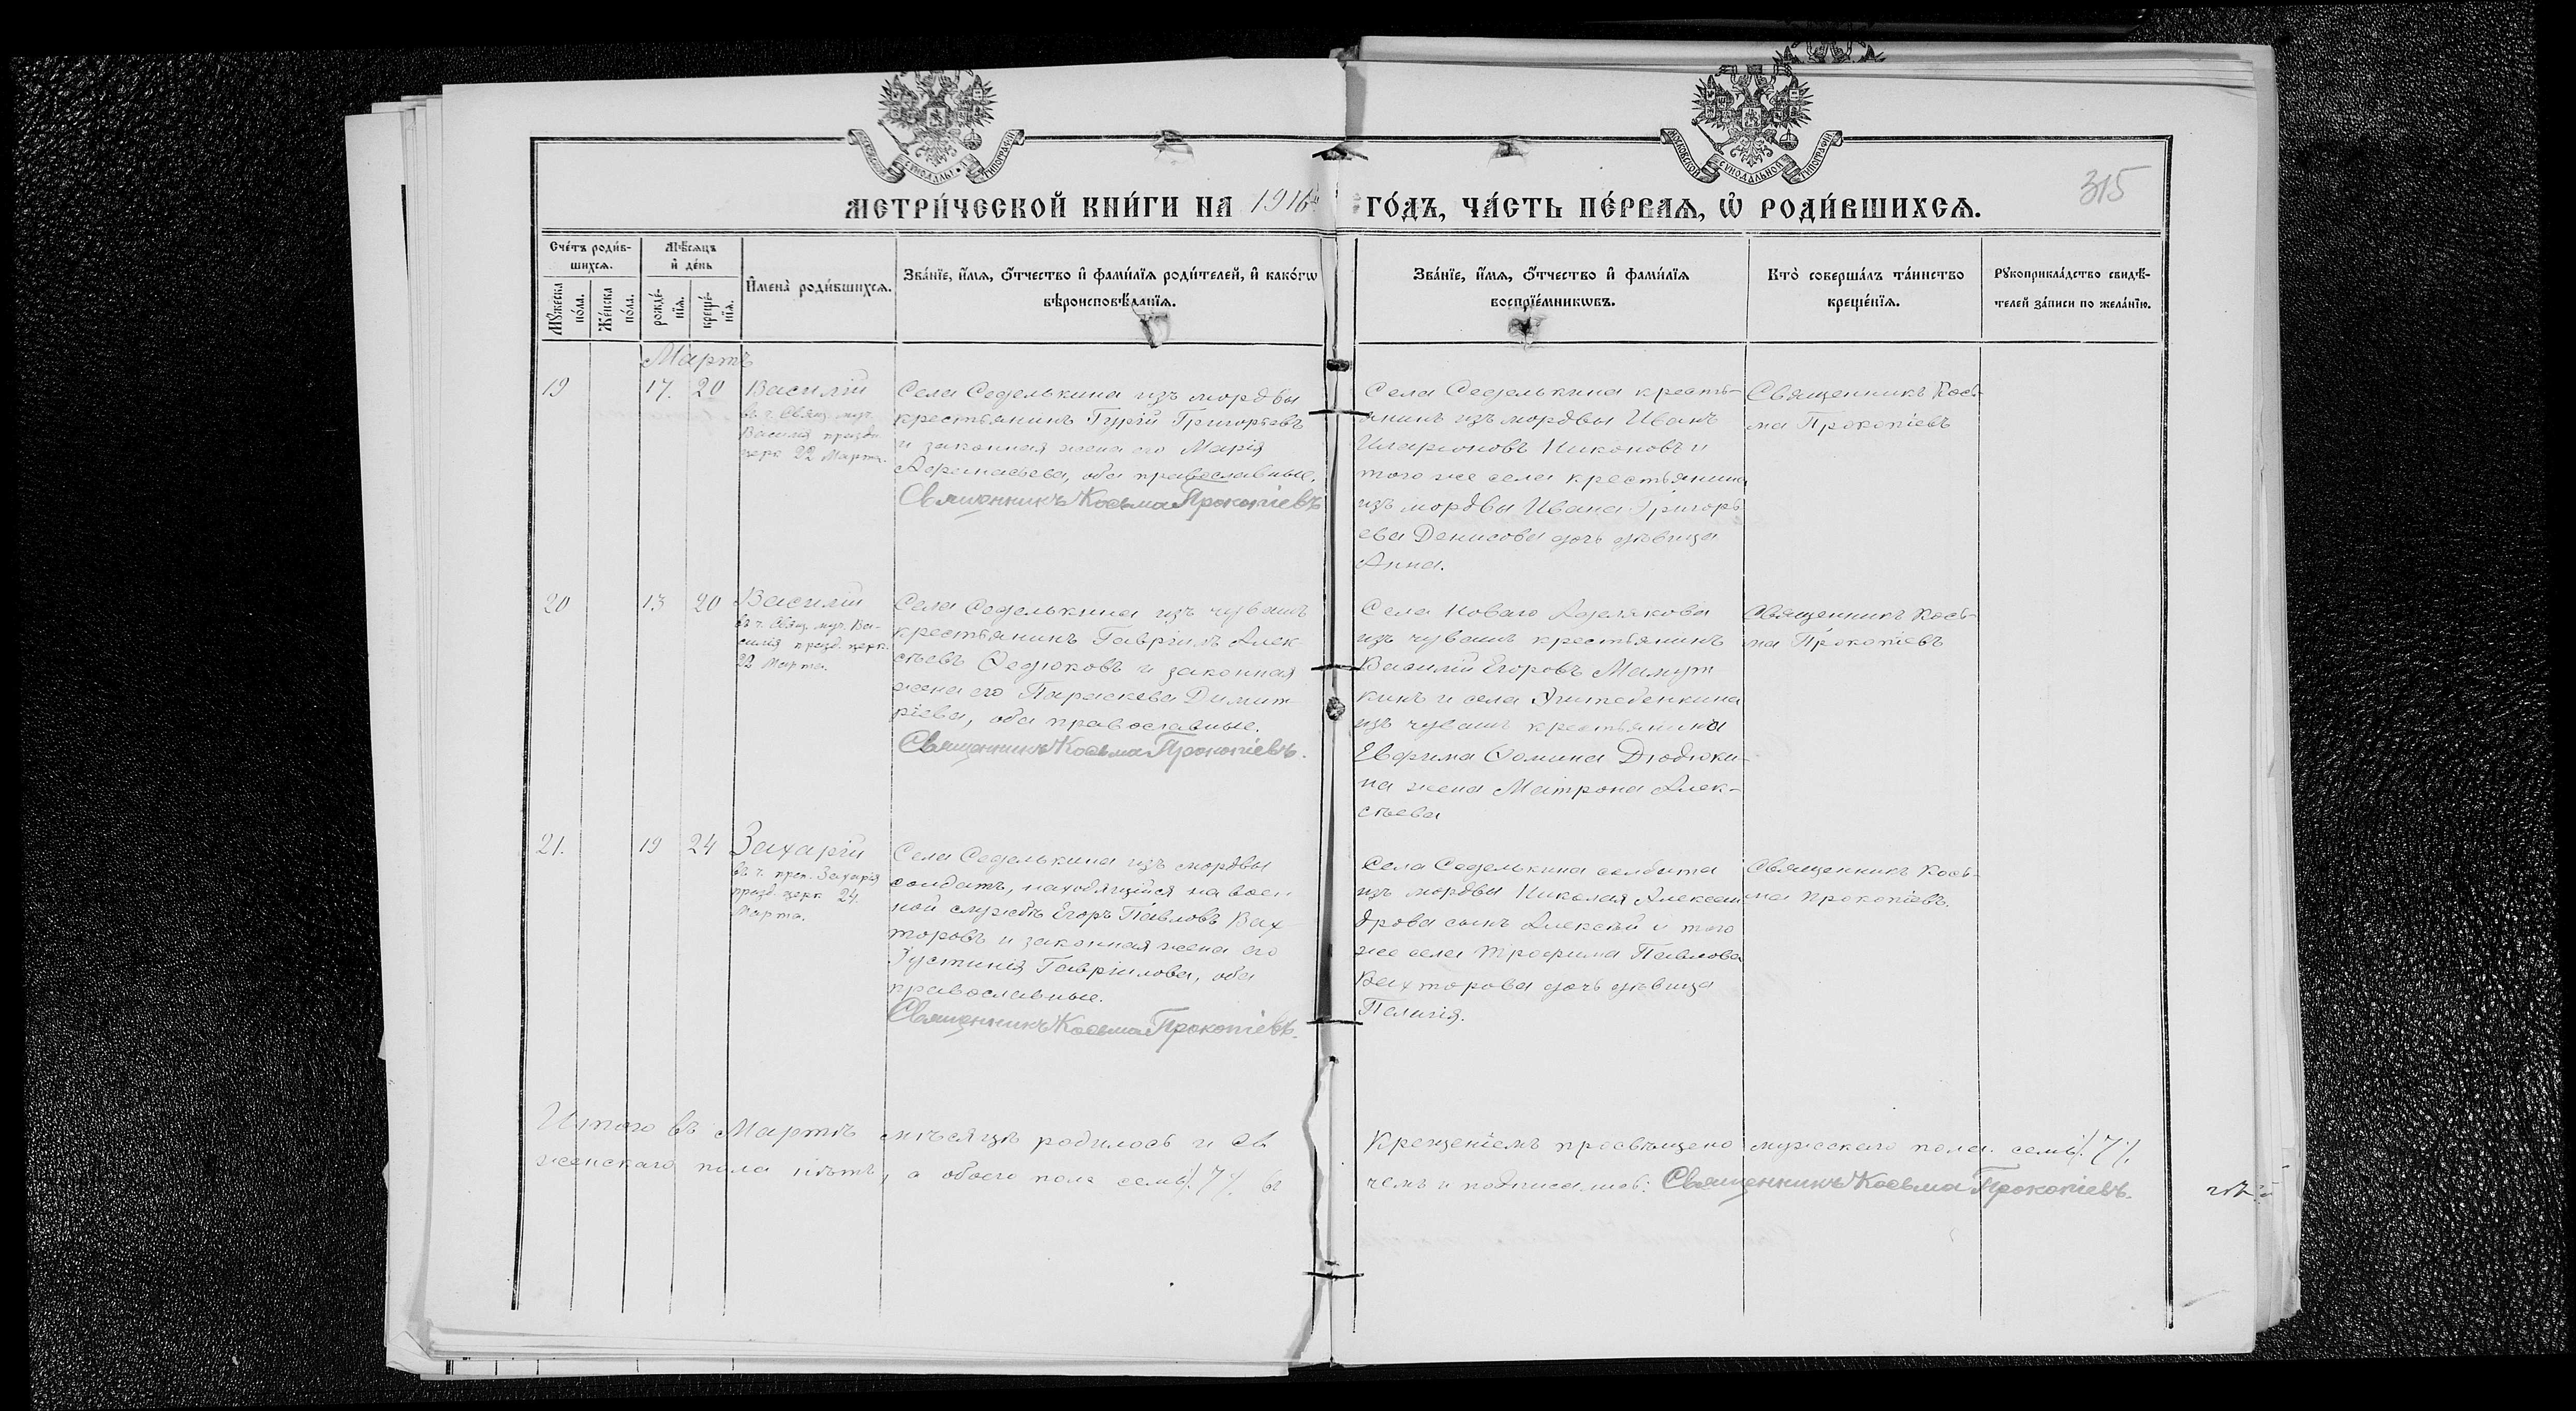 МОСКОВСКОЙ СУНОДАЛЬНОЙ ТИПОГРАФІИ
МОСКОВСКОЙ СУНОДАЛЬНОЙ ТИПОГРАФІИ
315
МЕТРИ́ЧЕСКОЙ КНИ́ГИ НА 1916й ГО́ДЪ, ЧА́СТЬ ПЕ́РВАѦ, Ѡ҆ РОДИ́ВШИХСѦ.
Сче́тъ роди́в-
шихсѧ.
Мѣ́сѧцъ
и҆ де́нь
Мꙋ́жеска
по́ла.
Же́нска
по́ла.
рожде́-
нїѧ.
креще́-
нїѧ.
И҆мена̀ роди́вшихсѧ.
Зва́нїе, и҆́мѧ, ѻ҆́тчество и҆ фами́лїѧ роди́телей, и҆ како́гѡ
вѣроисповѣ́данїѧ.
Зва́нїе, и҆́мѧ, ѻ҆́тчество и҆ фами́лїѧ
воспрїе́мникѡвъ.
Кто̀ соверша́лъ та́инство
креще́нїѧ.
Рꙋкоприкла́дство свидѣ́-
телей за́писи по жела́нїю.
Мартъ
19
17.
20
Василій
въ ч. Свящ. муч.
Василія праздн.
церк 22 Марта.
Села Седелькина изъ мордвы
крестьянинъ Гурій Григорьевъ
и законная жена его Марія
Афанасьева, оба православные.
Священникъ Косьма Прокопіевъ
Села Седелькина кресть-
янинъ изъ мордвы Иванъ
Иларіоновъ Никоновъ и
того же села крестьянина
изъ мордвы Ивана Григорь
ева Денисова дочь дѣвица
Анна.
Священникъ Кось-
ма Прокопіевъ
20
13
20
Василій
въ ч. Свящ. муч. Ва-
силія празд. церк.
22 Марта.
Села Седелькина изъ чувашъ
крестьянинъ Гавріилъ Алек
сѣевъ Ѳедюковъ и законная
жена его Параскева Димит
ріева, оба православные.
Священникъ Косьма Прокопіевъ.
Села Новаго Аделякова
изъ чувашъ крестьянинъ
Василій Егоровъ Мамут
кинъ и села
изъ чувашъ крестьянина
Евфима Ѳомина Дюдюки-
на жена Матрона Алек-
сѣева
Священникъ Кось-
ма Прокопіевъ
21.
19
24
Захарій
въ ч. преп. Захарія
празд. церк 24.
Марта.
Села Седелькина изъ мордвы
солдатъ, находящійся на воен
ной службѣ Егоръ Павловъ Вах
торовъ и законная жена его
Іустинія Гавріилова, оба
православные.
Священникъ Косьма Прокопіевъ.
Села Седелькина солдата
изъ мордвы Николая Алексан
дрова сынъ Алексѣй и того
же села Трофима Павлова
Вахторова дочь дѣвица
Пелагія.
Священникъ Кось-
ма Прокопіевъ.
Итого въ Мартѣ мѣсяцѣ родилось и св
Крещеніемъ просвѣщено мужескаго пола. семь /.7/.
женскаго пола нѣтъ, а обоего пола семь /.7/. въ
чемъ и подписались: Священникъ Косьма Прокопіевъ.